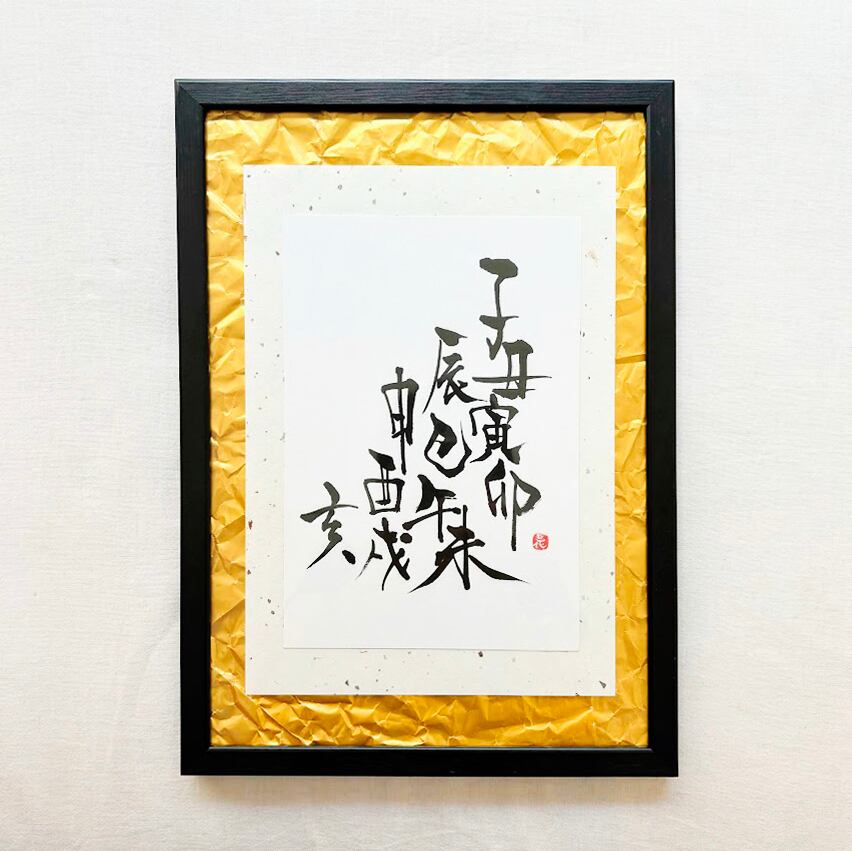 子丑寅卯
辰巳午未
申酉戌
亥